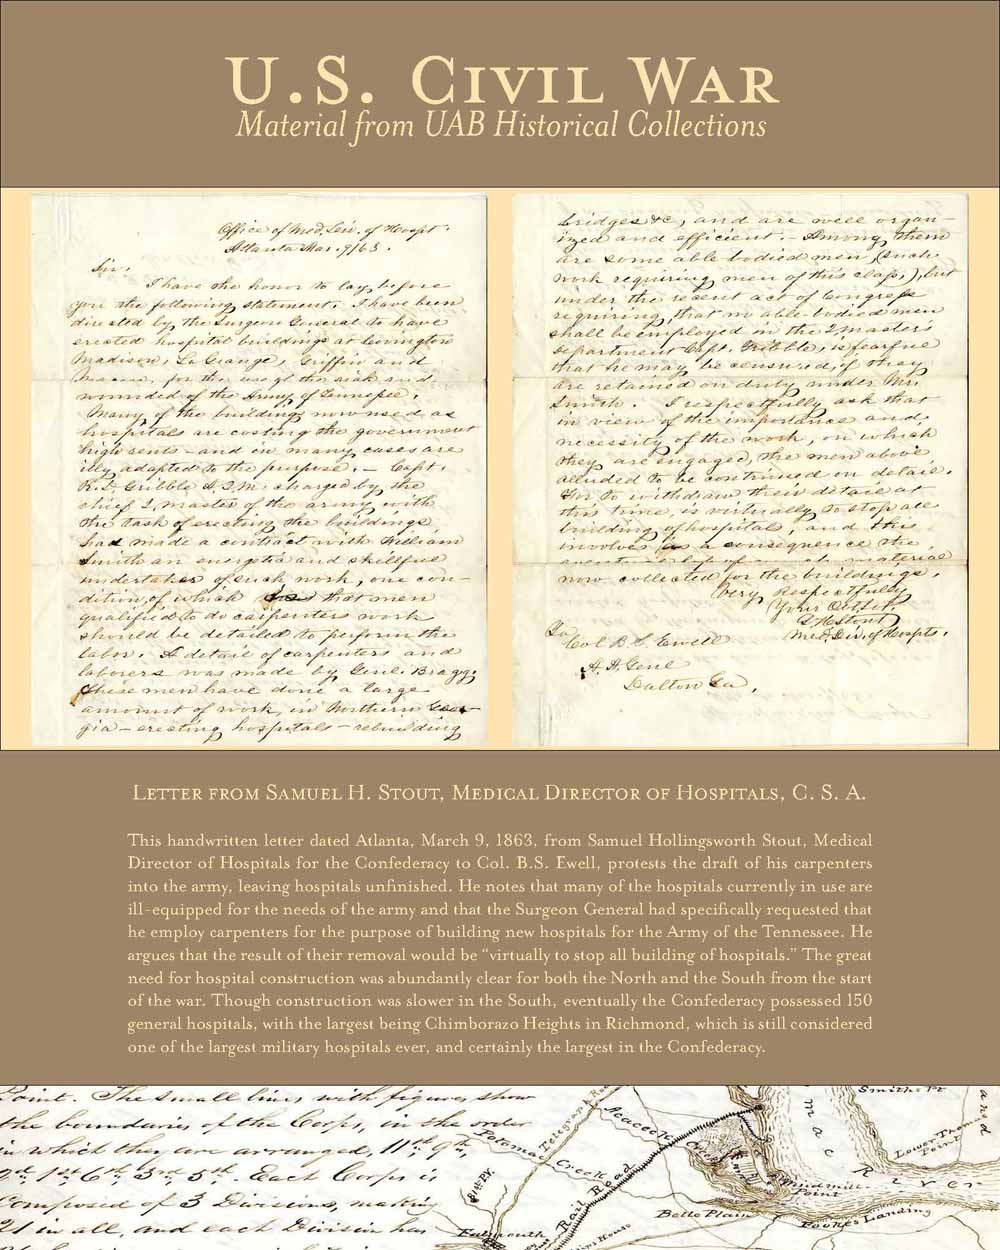 U.S. CIVIL WAR
Material from UAB Historical Collections
Office of Med. Dir. of Hospt.
Atlanta Mar. 9/63.
Sir,
I have the honor to lay before
you the following statement. I have been
directed by the Surgeon General to have
erected hospital buildings at Covington
Madison, La Grange, Griffin and
for the use of the sick and
wounded of the Army of Tennessee.
Many of the buildings now used as
hospitals are costing the government
high rents – and in many cases are
illy adapted to the purpose. – Capt.
Gribble charged by the
chief Q. Master of the army with
the task of erecting the buildings,
had made a contract with William
Smith an energetic and skillful
undertaker of such work, one con-
dition, of which that men
qualified to do carpenters work
should be detailed to perform the
labor. A detail of carpenters and
laborers was made by Genl. Bragg.
These men have done a large
amount of work, in Northern Geor-
gia – erecting hospitals – rebuilding
bridges &c, and are well organ-
ized and efficient. – Among them
are some able bodied men, (such
work requiring men of this class,), but
under the recent act of Congress
requiring, that no able-bodied men
shall be employed in the Q Master's
Department Capt. Gribble, is fearful
that he may be censured, if they
are retained on duty under Mr.
Smith. I respectfully ask that
in view of the importance and,
necessity of the work, on which
they are engaged, the men above
alluded to be continued on detail.
For to withdraw their detail at
this time, is virtually to stop all
building of hospitals, and this
involves as a consequence the
material
now collected for the buildings.
Very Respectfully
Your Obt. Svt.
S. H. Stout
Med. Dir. of Hospts.
To
Col B. S. Ewell
A. A. Genl
Dalton Ga,
LETTER FROM SAMUEL H. STOUT, MEDICAL DIRECTOR OF HOSPITALS, C. S. A.
This handwritten letter dated Atlanta, March 9, 1863, from Samuel Hollingsworth Stout, Medical
Director of Hospitals for the Confederacy to Col. B.S. Ewell, protests the draft of his carpenters
into the army, leaving hospitals unfinished. He notes that many of the hospitals currently in use are
ill-equipped for the needs of the army and that the Surgeon General had specifically requested that
he employ carpenters for the purpose of building new hospitals for the Army of the Tennessee. He
argues that the result of their removal would be “virtually to stop all building of hospitals.” The great
need for hospital construction was abundantly clear for both the North and the South from the start
of the war. Though construction was slower in the South, eventually the Confederacy possessed 150
general hospitals, with the largest being Chimborazo Heights in Richmond, which is still considered
one of the largest military hospitals ever, and certainly the largest in the Confederacy.
Point. The small lines with figures, show
the boundaries of the Corps, in the order
in which they are arranged, 11th 9th,
2d 1st 6th 3rd 5th. Each Corps is
composed of 3 Divisions, making
21 in all, and each Division has
Potomac Creek
Telegraph Road
Accaceek Creek
Rail Road
Falmouth
Belle Plain
Windmill Point
Pookes Landing
Lower Thomas Point
Smiths Pt
mac River